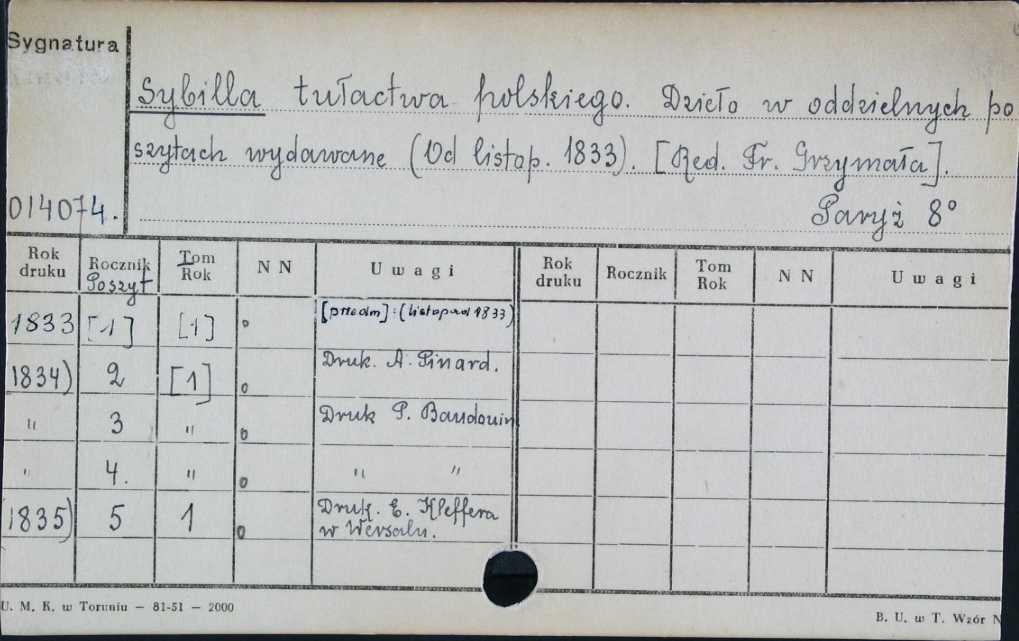 Sygnatura
Sybilla tułactwa polskiego. Dzieło w oddzielnych po
szytach wydawane (Od listop. 1833). [Red. Fr. Grzymała].
014074. Paryż 8°
Rok druku Rocznik Poszyt Tom Rok N N Uwagi Rok druku Rocznik Tom Rok N N Uwagi
1833 [1] [1] o [przedm]: (listopad 1833)
1834) 2 [1] o Druk. A. Pinard.
" 3 " o Druk P. Baudouin
" 4. " o " "
1835) 5 1 o Druk. E. Kleffera
w Wersalu.
U. M. K. w Toruniu — 81-51 — 2000
B. U. w T. Wzór N